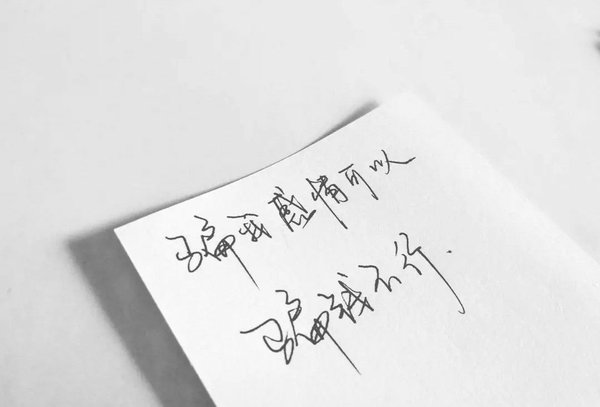 骗我感情可以
骗钱不行.